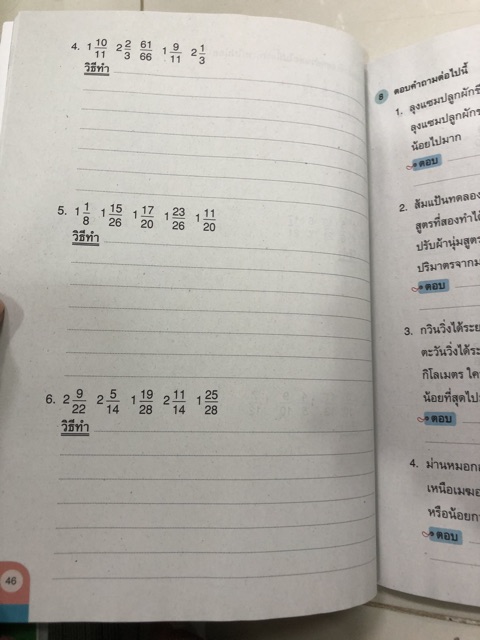 4. 1 10/11 2 2/3 61/66 1 9/11 2 1/3
วิธีทำ
5. 1 1/8 1 15/26 1 17/20 1 23/26 1 11/20
วิธีทำ
6. 2 9/22 2 5/14 1 19/28 2 11/14 1 25/28
วิธีทำ
46
8 ตอบคำถามต่อไปนี้
1. ลุงแซมปลูกผักชี
ลุงแซมปลูกผักร
น้อยไปมาก
ตอบ
2. ส้มแป้นทดลอง
สูตรที่สองทำได้
ปรับผ้านุ่มสูตร
ปริมาตรจากม
ตอบ
3. กวินวิ่งได้ระย
ตะวันวิ่งได้ระ
กิโลเมตร ใค
น้อยที่สุดไป
ตอบ
4. ม่านหมอก
เหนือเมฆ
หรือน้อยก
ตอบ